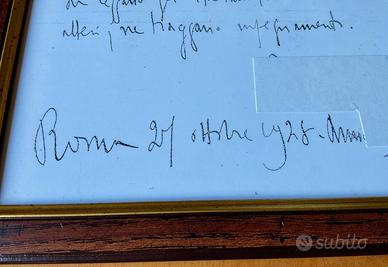 altri, ne traggano insegnamento.
Roma 27 ottobre 1928 - Anno
subito